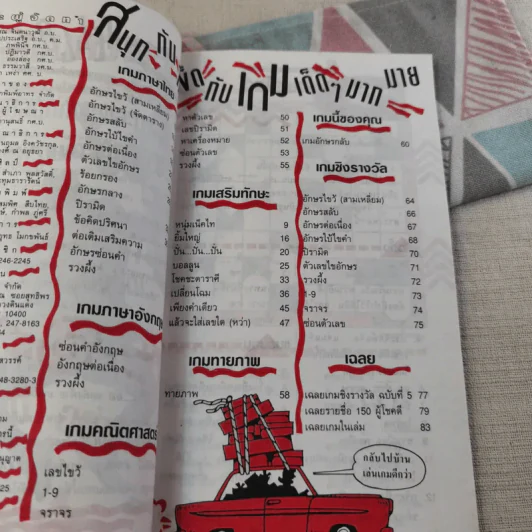 สนุกกับ
เกมภาษาไทย
อักษรไขว้ (สามเหลี่ยม)
อักษรไขว้ (จัตตาราง)
อักษรสลับ
อักษรไบ้ใขคำ
อักษรต่อเนื่อง
ตัวเลขไขอักษร
ร้อยกรอง
อักษรกลาง
ปิรามิด
ข้อคิดปริศนา
ต่อเติมเสริมความ
อักษรซ่อนคำ
รวงผึ้ง
เกมภาษาอังกฤษ
ซ่อนคำอังกฤษ
อังกฤษต่อเนื่อง
รวงผึ้ง
เกมคณิตศาสตร์
เลขไขว้
1-9
จราจร
กับเกมเด็ดๆ มากมาย
หาตัวเลข 50
เลขปิรามิด 51
หาเครื่องหมาย 52
ซ่อนตัวเลข 53
รวงผึ้ง 55
เกมเสริมทักษะ
หนุ่มเน็คไท 9
ยิ้มใหญ่ 16
ปั่น...ปั่น...ปั่น 20
บอลลูน 25
โชคชะตาราศี 33
เปลี่ยนโฉม 36
เพียงคำเดียว 45
แล้วจะใส่เลขใด (หว่า) 47
เกมทายภาพ
ทายภาพ 58
เกมนี้ของคุณ
เกมอักษรกลับ 60
เกมชิงรางวัล
อักษรไขว้ (สามเหลี่ยม) 64
อักษรสลับ 66
อักษรต่อเนื่อง 67
อักษรไบ้ใขคำ 68
ปิรามิด 70
ตัวเลขไขอักษร 71
รวงผึ้ง 72
1-9 73
จราจร 74
ซ่อนตัวเลข 75
เฉลย
เฉลยเกมชิงรางวัล ฉบับที่ 5 77
เฉลยรายชื่อ 150 ผู้โชคดี 79
เฉลยเกมในเล่ม 83
กลับไปบ้าน
เล่นเกมดีกว่า